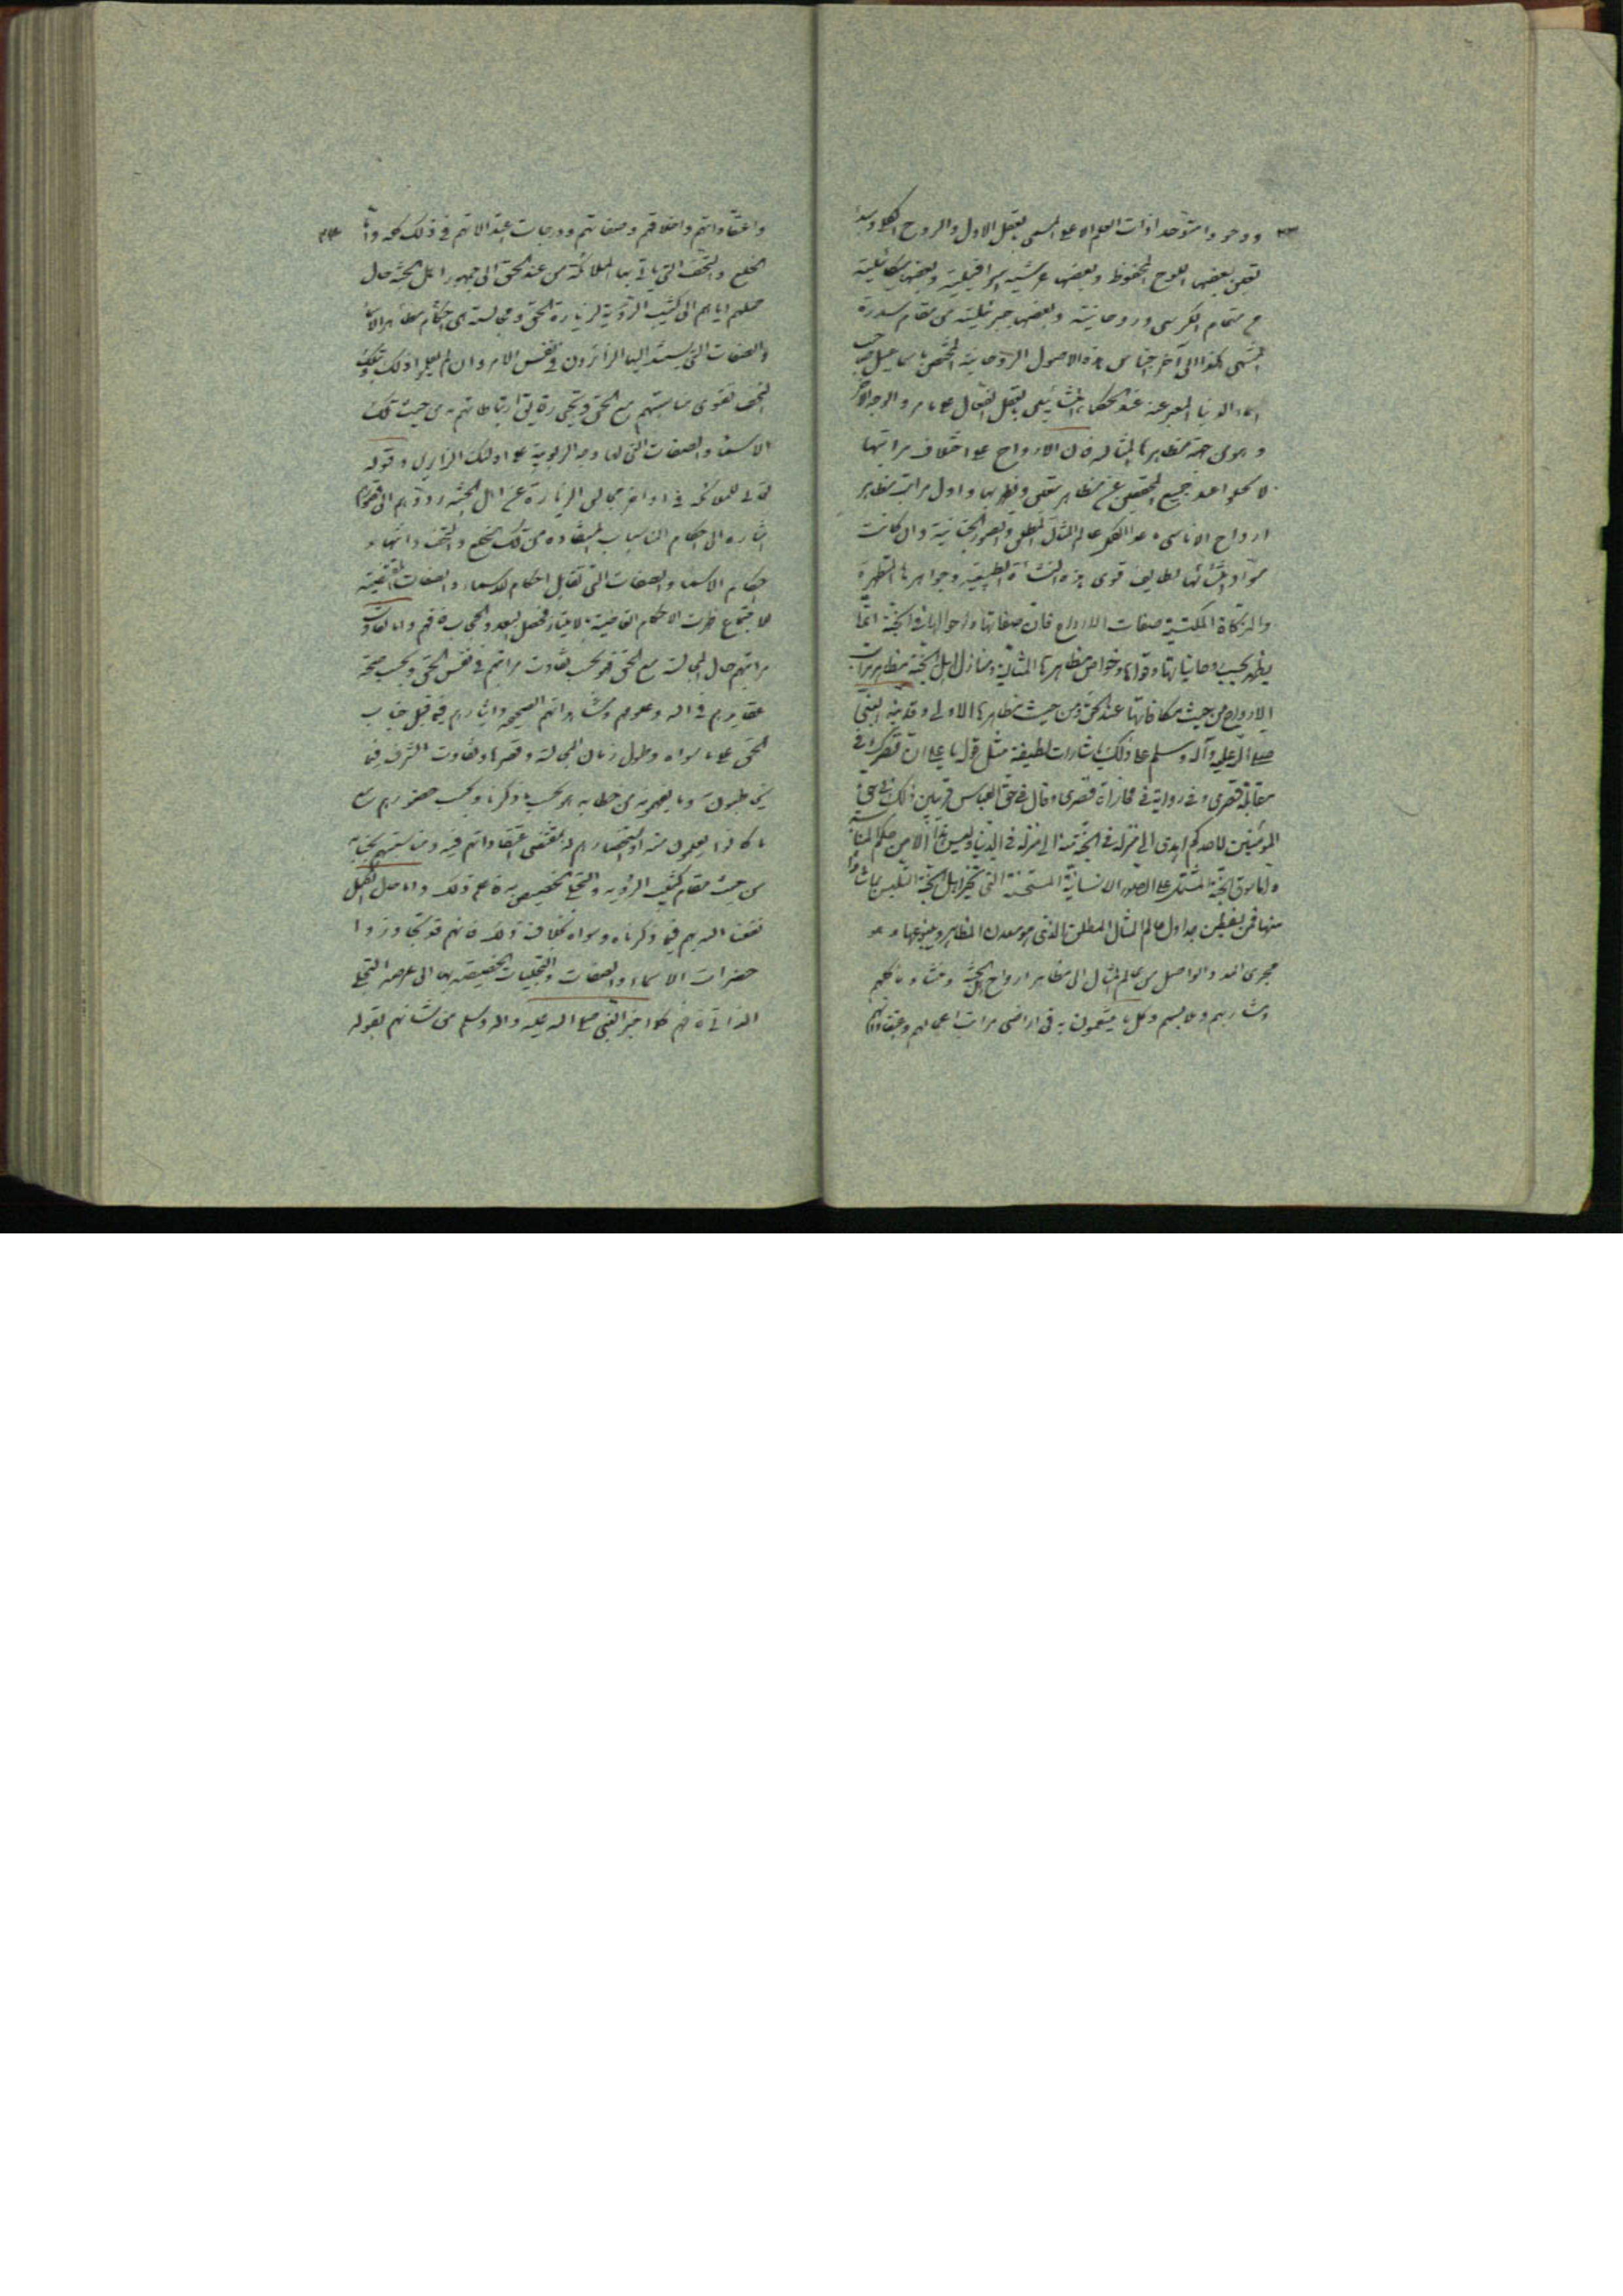 ووجودا متوحدا ذات القلم الاعلى المسمى بالعقل الاول والروح الكلى
تعين بعضها اللوح المحفوظ وبعضها عرشية اسرافيلية وبعضها ميكائيلية
مقام الكرسى وروحانيته وبعضها جبرئيلية من مقام سدرة
المنتهى هكذا الى آخر اجناس هذه الاصول الروحانية المختص باسماعيل صاحب
سماء الدنيا المعبر عنه عند الحكماء المشائين بالعقل الفعال على ما مر والوجه الآخر
وهو من جهة مظاهرها المثالية فان الارواح على اختلاف مراتبها
لا تخلو عند جميع المحققين عن مظاهر تتعين وتظهر بها واول مراتب مظاهر
ارواح الاناسى عند الكل عالم المثال المطلق والصور الجنانية وان كانت
مواد انشائها لطايف قوى هذه النشأة الطبيعية وجواهرها المطهرة
والمزكاة المكتسبة صفات الارواح فان صفاتها واحوالها فى الجنة انما
يظهر بحسب روحانياتها وقواها وخواص مظاهرها المثالية ومنازل اهل الجنة مظاهر مراتب
الارواح من حيث مكاناتها عند الحق ومن حيث مظاهرها الاولى وقد نبه النبى
صلى الله عليه وآله وسلم على ذلك باشارات لطيفة مثل قوله يا على ان قصرك فى
مقابلة قصرى وفى رواية فى محاذاة قصرى وقال فى حق العباس قريبا من ذلك وقال فى حق
المؤمنين لاحدكم اهدى الى منزله فى الجنة منه الى منزله فى الدنيا وليس هذا الا من حكم المناسبة
واما سوق الجنة المشتمل على الصور الانسانية المستحسنة التى تخير اهل الجنة التلبس بما شاؤا
منها فمن بعض جداول عالم المثال المطلق الذى هو معدن المظاهر وينبوعها وهو
مجرى المدد الواصل من عالم المثال الى مظاهر ارواح اهل الجنة ومنشأ مآكلهم
ومشاربهم وملابسهم وكل ما يتنعمون به فى اراضى مراتب اعمالهم واعتقاداتهم
واعتقاداتهم واخلاقهم وصفاتهم ودرجات اعتدالاتهم فى ذلك كله واما
الخلع والتحف التى ياتى بها الملائكة من عند الحق الى جمهور اهل الجنة حال
حملهم اياهم الى كثيب الرؤية لزيارة الحق ومجالسته هى احكام مظاهر الاسماء
والصفات التى يستند اليها الزائرون فى نفس الامر وان لم يعلموا ذلك وبتلك
التحف تقوى مناسبتهم مع الحق ويحيى رقايق ارتباطاتهم به من حيث تلك
الاسماء والصفات التى لها درجة الربوبية على اولئك الزايرين وقوله
تعالى للملائكة فى اواخر مجالس الزيارة عن اهل الجنة ردوهم الى قصورهم
اشارة الى احكام المناسبات المستفادة من تلك الخلع والتحف وانتهاء
احكام الاسماء والصفات التى تقابل احكام الاسماء والصفات المقتضية
للاجتماع فظهرت الاحكام القاضية بالامتياز فحصل البعد والحجاب فافهم واما تفاوت
مراتبهم حال المجالسة مع الحق فهو بحسب تفاوت مراتبهم فى نفس الحق وبحسب صحة
عقايدهم فى الله وعلومهم ومشاهداتهم الصحيحة وايثارهم فيما قبل جناب
الحق على ما سواه وطول زمان المجالسة وقصرها وتفاوت الشرف فيما
يخاطبون وما يفهمونه من خطابه هو بحسب ما ذكرنا وبحسب حضورهم مع
ما كانوا يعلمون منه او استحضارهم له بمقتضى اعتقاداتهم فيه ومناسبتهم بجنابه
من حيث مقام كثيب الرؤية والتجلى المخصوص به فاعلم ذلك واما حال الكمل
نفعنا الله بهم فيما ذكرناه وسواه فبخلاف ذلك فانهم قد تجاوزوا
حضرات الاسماء والصفات والتجليات المخصوصة بها الى عرصة التجلى
الذاتى فهم كما اخبر النبى صلى الله عليه واله وسلم من شانهم بقوله